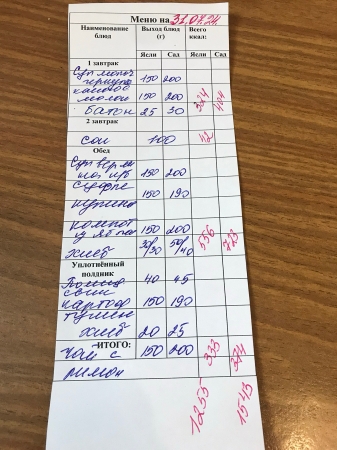 Меню на 31.07.24.
Наименование блюд Выход блюд (г) Всего ккал:
Ясли Сад Ясли Сад
1 завтрак
Суп молоч 150 200
молок 150 200
батон 25 30
2 завтрак
сок 100 42
Обед
Суп верми 150 200
суфле 150 190
компот 150 200 556 723
хлеб 30/30 50/40
Уплотнённый полдник
Помид 40 45
картоф 150 190
тушен
хлеб 20 25
ИТОГО:
Чай с 150 200 333 374
лимон
1255 1543